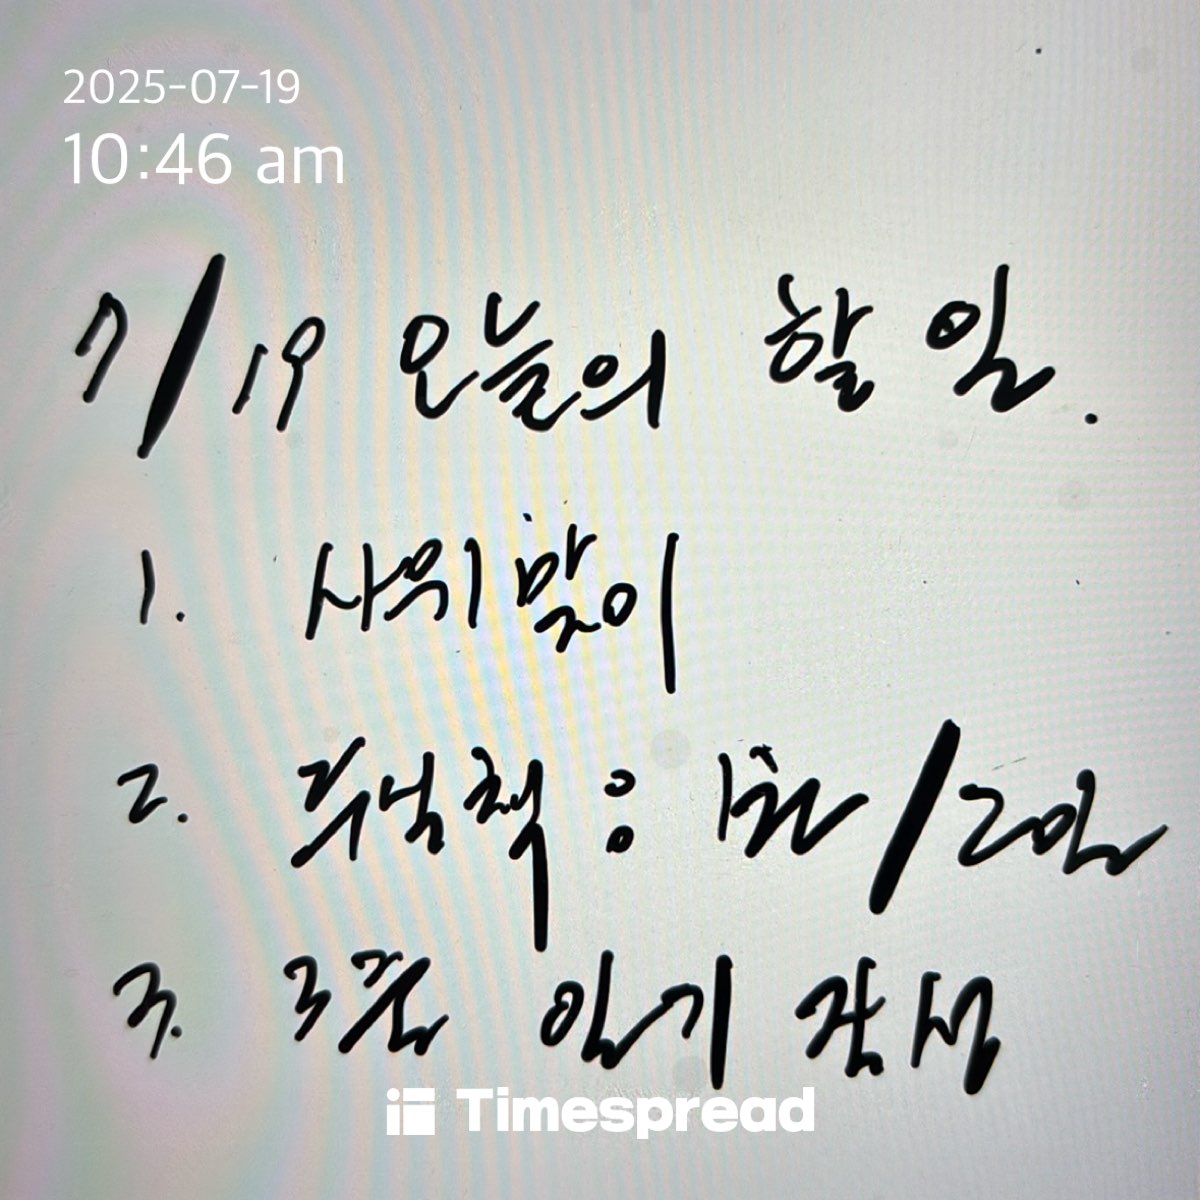 2025-07-19
10:46 am
7/19 오늘의 할 일.
1. 사위맞이
2. 주남책 : 1권/2일
3. 3줄 일기 작성
Timespread